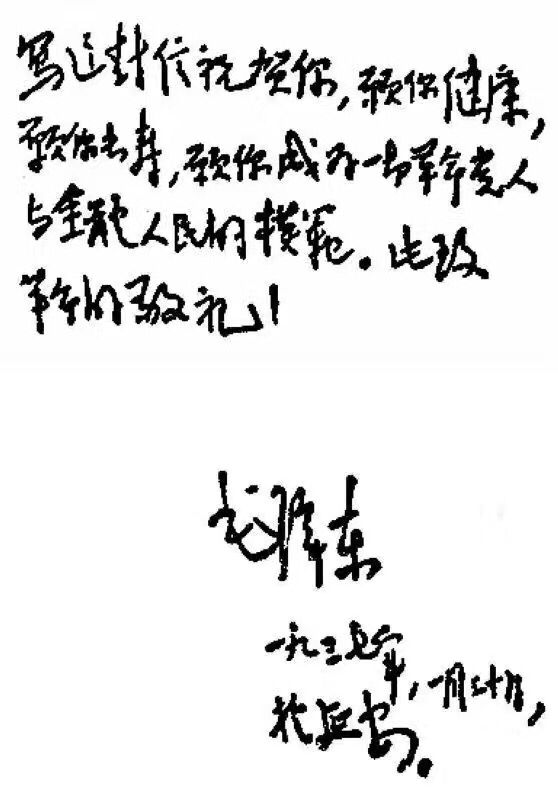 写这封信祝贺你,愿你健康,
愿你长寿,愿你成为一切革命党人
与全体人民的模范。此致
革命的敬礼!
毛泽东
一九三七年,一月三十日,
于延安。